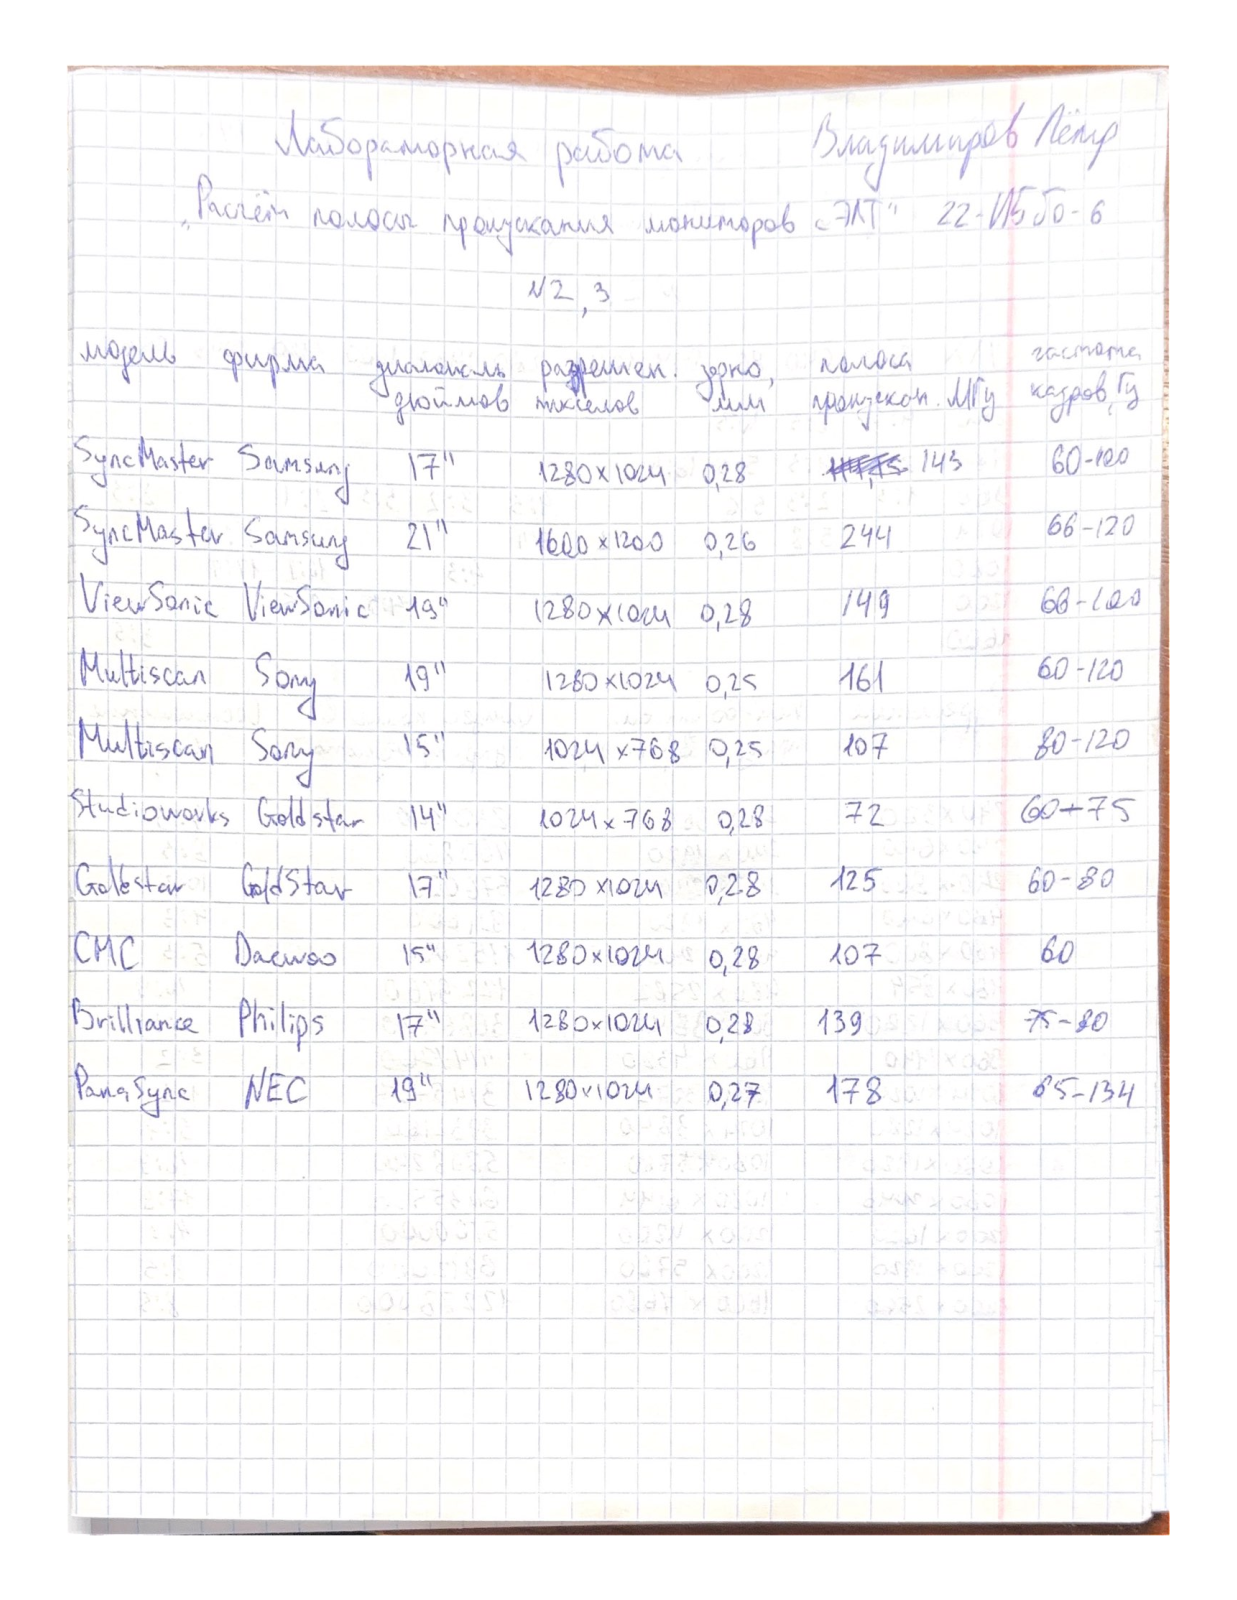 Лабораторная работа Владимиров Пётр
„Расчёт полосы пропускания мониторов с ЭЛТ" 22-ИБО-6
N2,3
модель фирма диагональ разрешен. зерно, полоса частота
дюймов пикселов мм пропускан. МГц кадров, Гц
SyncMaster Samsung 17" 1280x1024 0,28 143 60-100
SyncMaster Samsung 21" 1600x1200 0,26 244 66-120
ViewSonic ViewSonic 19" 1280x1024 0,28 149 66-100
Multiscan Sony 19" 1280x1024 0,25 161 60-120
Multiscan Sony 15" 1024x768 0,25 107 80-120
Studioworks Goldstar 14" 1024x768 0,28 72 60-75
Goldstar GoldStar 17" 1280x1024 0,28 125 60-80
CMC Daewoo 15" 1280x1024 0,28 107 60
Brilliance Philips 17" 1280x1024 0,28 139 75-80
PanaSync NEC 19" 1280x1024 0,27 178 65-134